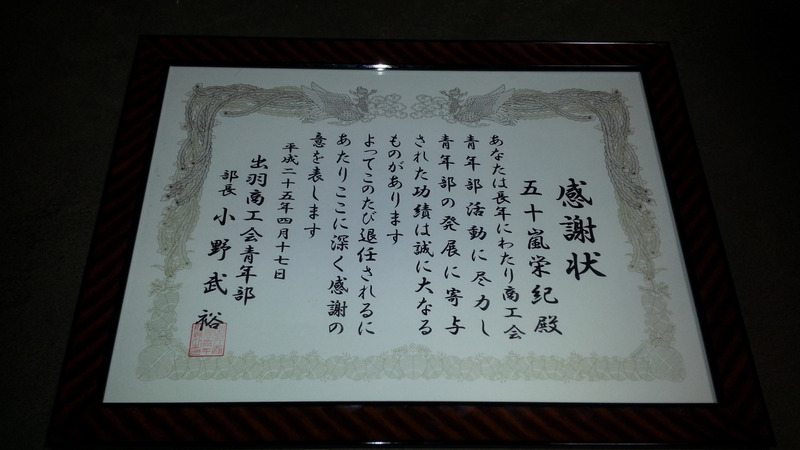 感謝状
五十嵐栄紀殿
あなたは長年にわたり商工会
青年部活動に尽力し
青年部の発展に寄与
された功績は誠に大なる
ものがあります
よってこのたび退任されるに
あたりここに深く感謝の
意を表します
平成二十五年四月十七日
出羽商工会青年部
部長 小野武裕